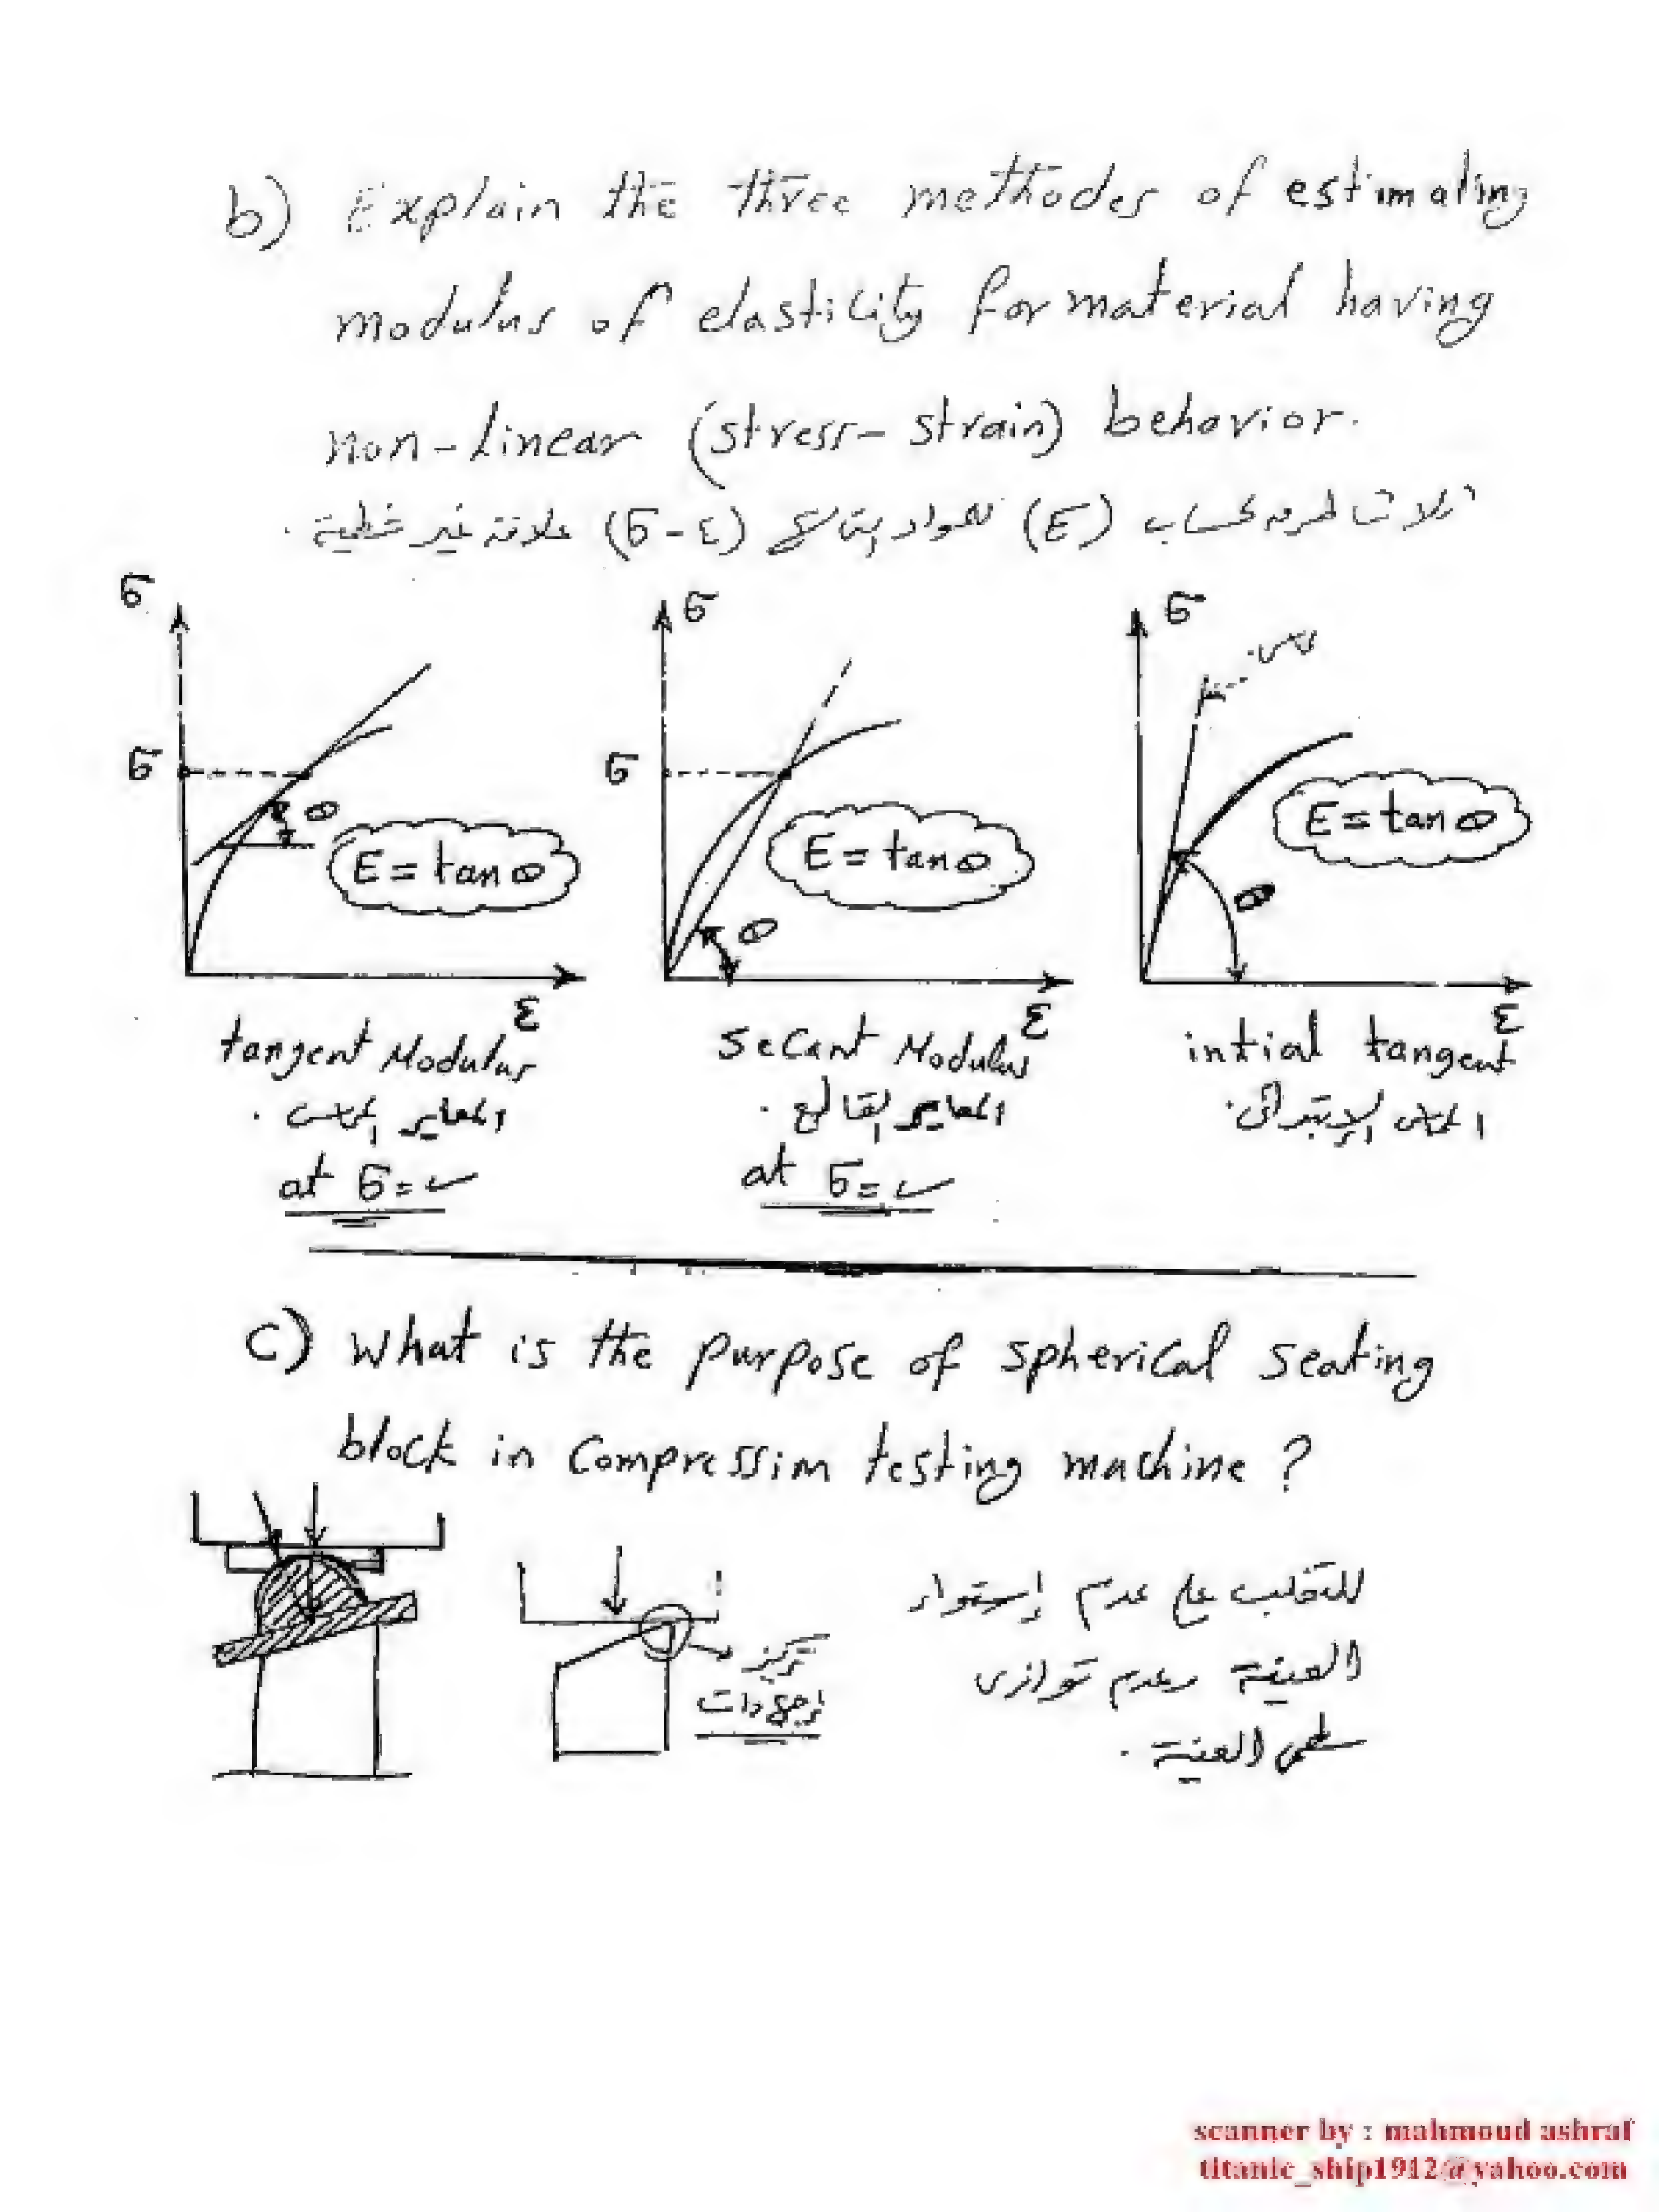 b) Explain the three methodes of estimating
modulus of elasticity for material having
non-linear (stress-strain) behavior.
ثلاث طرق لحساب (E) للمواد التى لها (σ-ε) علاقة غير خطية.
σ
σ
θ
E = tan θ
ε
tangent Modulus
المعاير المماس.
at σ = ✓
σ
σ
θ
E = tan θ
ε
Secant Modulus
المعاير القاطع.
at σ = ✓
σ
مماس.
θ
E = tan θ
ε
intial tangent
المماس الإبتدائى.
c) What is the purpose of spherical seating
block in compression testing machine?
تركيز
إجهادات
للتغلب على عدم إستواء
العينة وعدم توازى
سطحى العينة.
scanner by : mahmoud ashraf
titanic_ship1912@yahoo.com